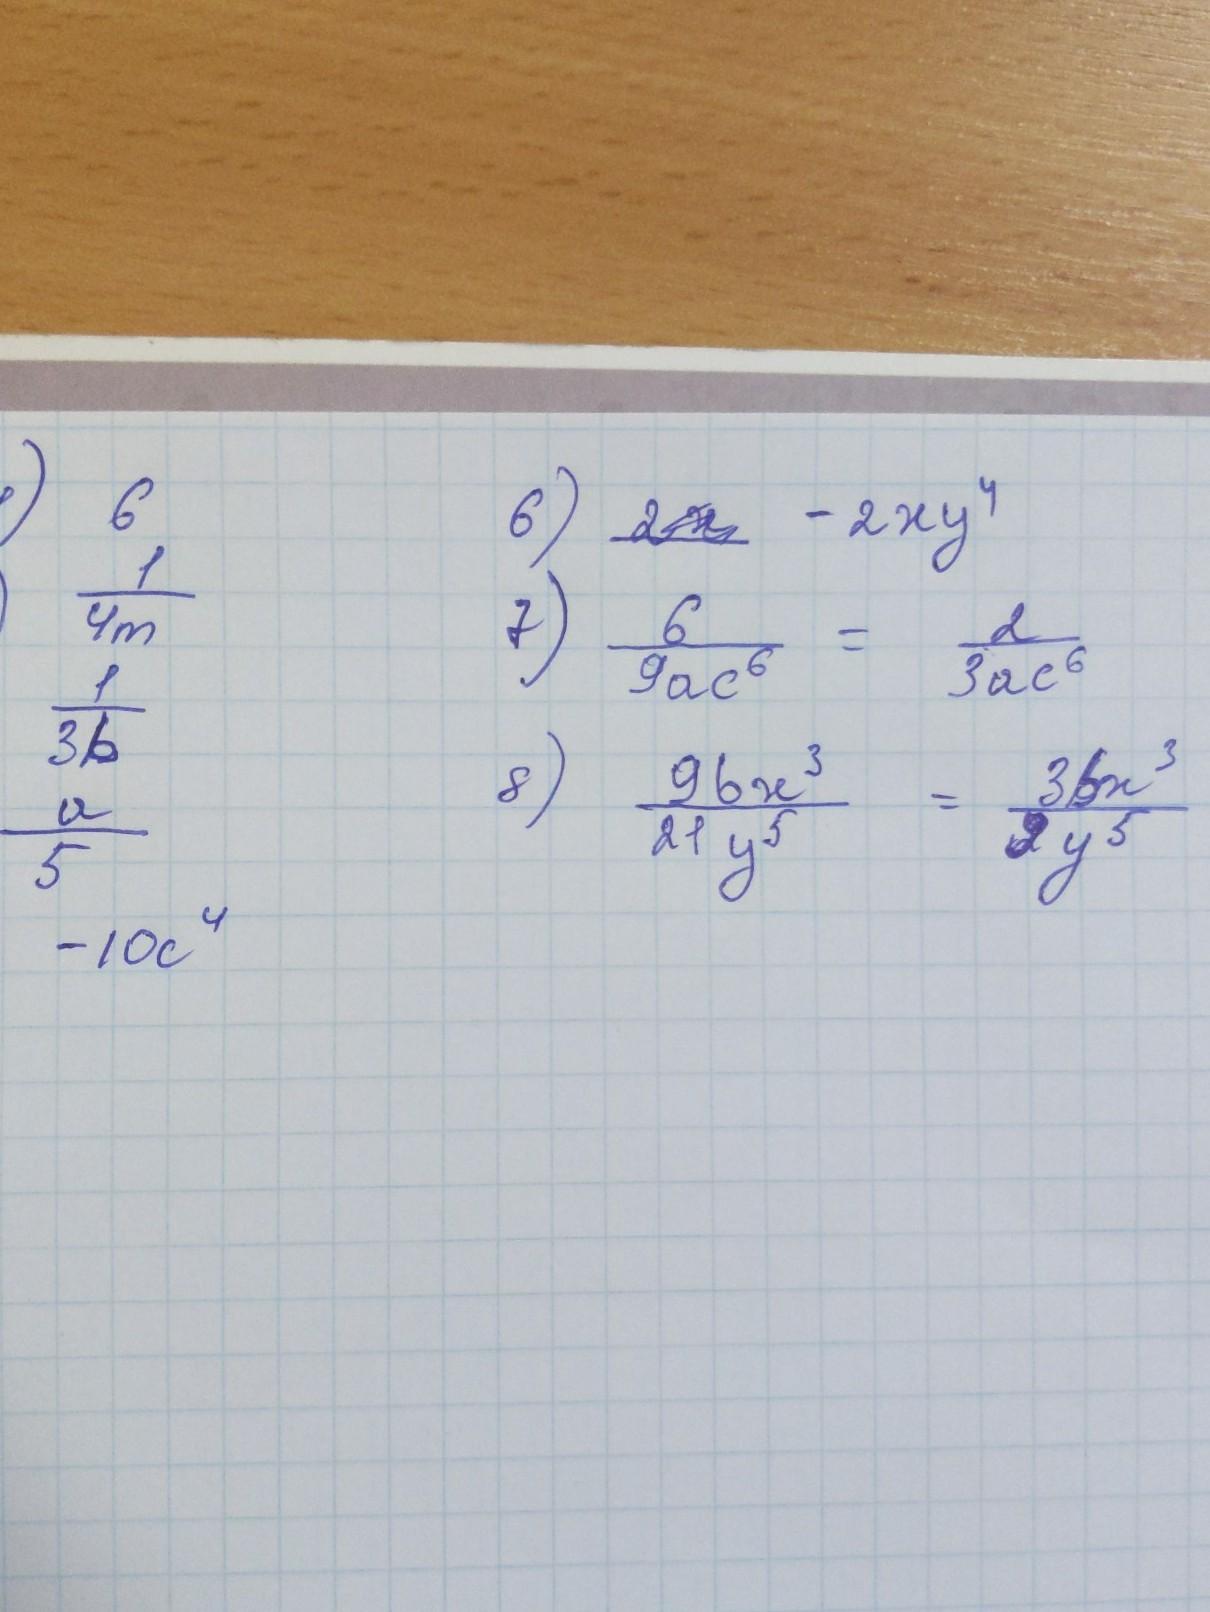 ) 6
) 1/4m
1/3b
a/5
-10c⁴
6) -2xy⁴
7) 6/9ac⁶ = 2/3ac⁶
8) 9bx³/21y⁵ = 3bx³/2y⁵